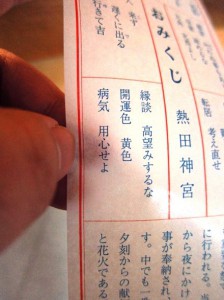 転居 考え直せ
おみくじ 熱田神宮
遅くに出る
行きて吉
縁談 高望みするな
開運色 黄色
病気 用心せよ
に行われる。
から夜にかけ
事が奉納され
す。中でも一
夕刻からの献
と花火である